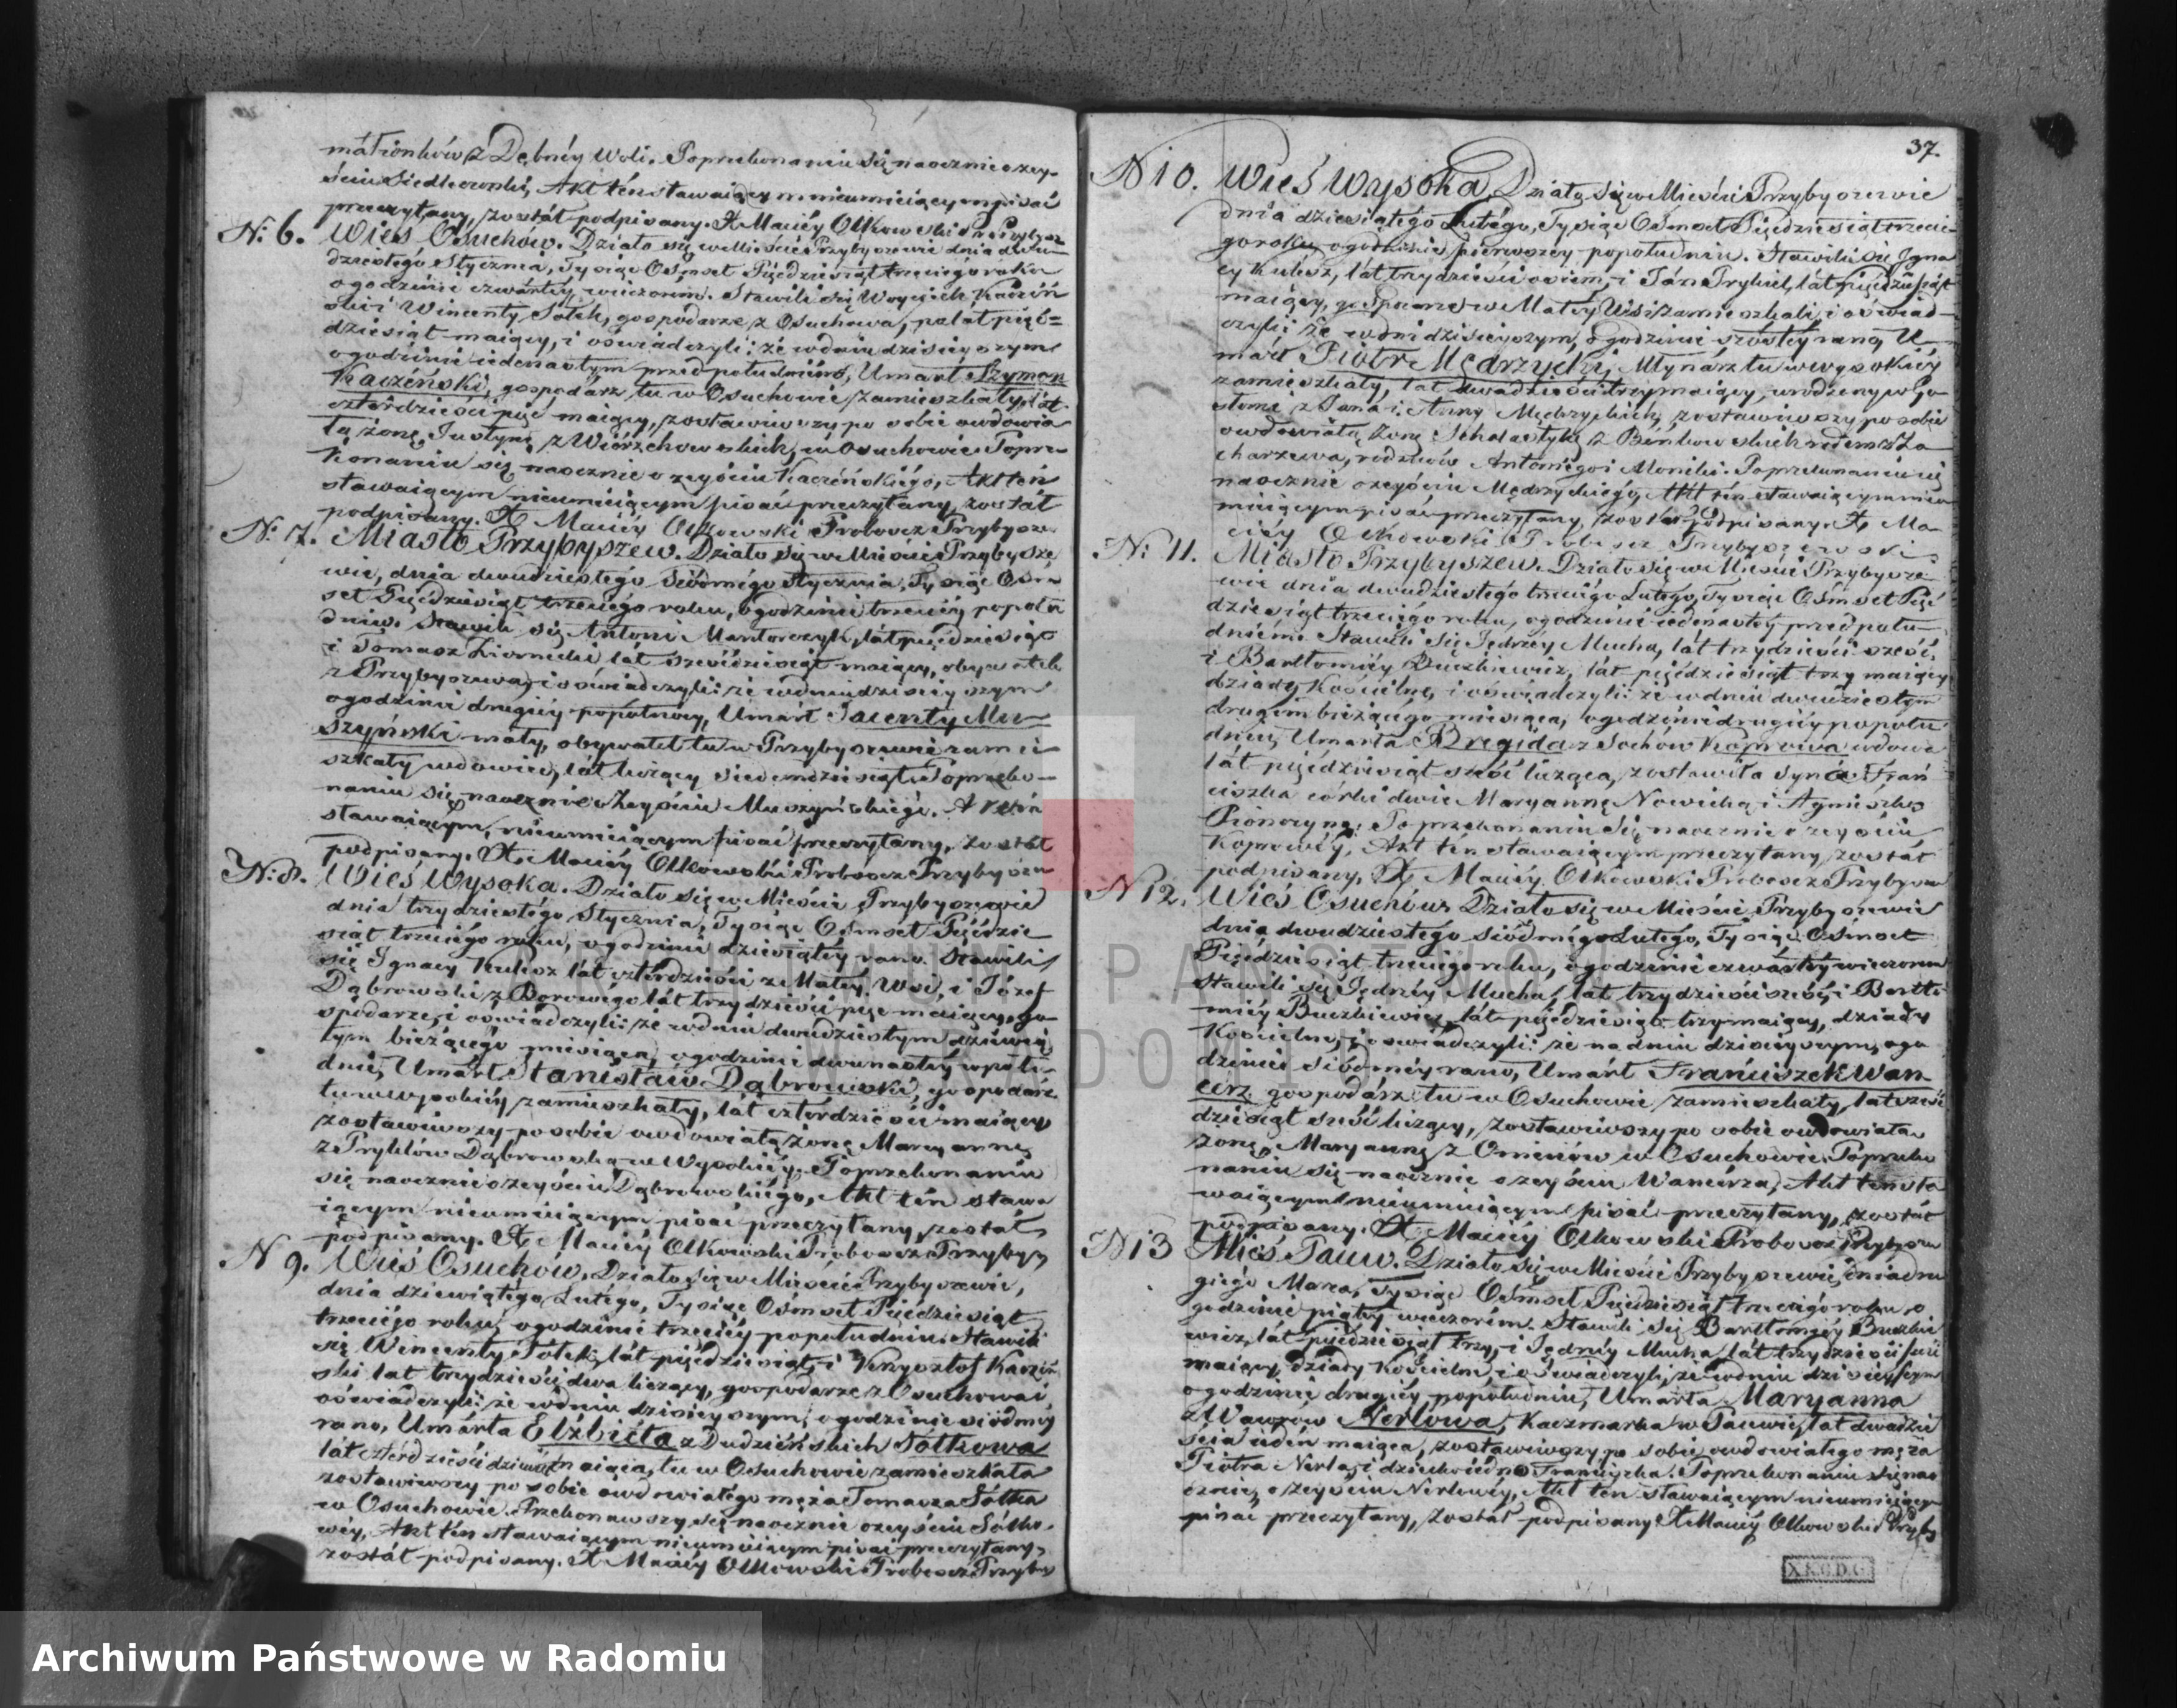 małżonków z Dębnéy Woli. Po przekonaniu się naocznie o zey-
ściu Siedleowski, Akt tén stawaiącym nieumieiącym pisać
przeczytany, został podpisany. X Maciéy Olkowski Pro: Przybysze
N: 6. Wieś Osuchów. Działo się w Mieście Przybyszewie dnia dwu-
dziestego Stycznia, Tysiąc Ośmset Pięćdziesiąt trzeciego roku
o godzinie czwartéy wieczorem. Stawili się Woyciech Kaczéń
ski i Wincenty Sótek, gospodarze z Osuchowa, po lat pięć=
dziesiąt maiący, i oświadczyli: że w dniu dzisieyszym
o godzinie iedenastym przed południem, Umarł Szymon
Kaczéński, gospodarz tu w Osuchowie zamieszkały, lat
czterdzieści pięć maiący, zostawiwszy po sobie owdowia
łą żonę Justynę z Wiérzchowskich, w Osuchowie. Po prze-
konaniu się naocznie o zeyściu Kaczéńskiego, Akt tén
stawaiącym nieumieiącym pisać przeczytany, został
podpisany. X Maciéy Olkowski Proboszcz Przybysze
N: 7. Miasto Przybyszew. Działo się w Mieście Przybysze
wie, dnia dwudziestego siódmego Stycznia, Tysiąc Ośm-
set Pięćdziesiąt trzeciego roku, o godzinie trzeciéy popołu
dniu. Stawili się Antoni Mantorczyk, lat pięćdziesiąt
i Tomasz lat sześćdziesiąt maiący, obywatele
z Przybyszewa, i oświadczyli: że w dniu dzisieyszym
o godzinie drugiéy popołudniu, Umarł Jacenty Mu-
szyński mały, obywatel tu w Przybyszewie zamie-
szkały wdowiec, lat liczący siedemdziesiąt. Po przeko-
naniu się naocznie o Zeyściu Muszyńskiego, Akt tén
stawaiącym, nieumieiącym pisać przeczytany, został
podpisany. X. Maciéy Olkowski Proboszcz Przybysze
N: 8. Wieś Wysoka. Działo się w Mieście Przybyszewie
dnia trzydziestego Stycznia, Tysiąc Ośmset Pięćdzie
siąt trzeciego roku, o godzinie dziesiątéy rano. Stawili
się Ignacy Kulesz lat czterdzieści z Małéy Wsi, i Józef
Dąbrowski z Borowego lat trzydzieści pięć maiący, go-
spodarze, i oświadczyli: że w dniu dwudziestym dziewią
tym bieżącego miesiąca, o godzinie dwunastéy w połu-
dnie, Umarł Stanisław Dąbrowski, gospodarz
tu w Wysokiéy zamieszkały, lat czterdzieści maiący
zostawiwszy po sobie owdowiałą żonę Maryannę
z Pryklów Dąbrowską w Wysokiéy. Po przekonaniu
się naocznie o zeyściu Dąbrowskiego, Akt tén stawa
iącym nieumieiącym pisać przeczytany, został
podpisany. X. Maciéy Olkowski Proboszcz Przybysz
N 9. Wieś Osuchów. Działo się w Mieście Przybyszewie,
dnia dziewiątego Lutego, Tysiąc Ośmset Pięćdziesiąt
trzeciego roku, o godzinie trzeciéy popołudniu. Stawili
się Wincenty Sótek, lat pięćdziesiąt, i Krzysztof Kaczéń
ski lat trzydzieści dwa liczący, gospodarze z Osuchowa i
oświadczyli: że w dniu dzisieyszym, o godzinie siódméy
rano, Umarła Elżbieta z Dudzińskich Sótkowa
lat czterdzieści dziewięć maiąca, tu w Osuchowie zamieszkała
zostawiwszy po sobie owdowiałego męża Tomasza Sótka
w Osuchowie. Przekonawszy się naocznie o zeyściu Sótko-
wéy, Akt tén stawaiącym nieumieiącym pisać przeczytany,
został podpisany. X Maciéy Olkowski Proboszcz Przybys
37.
N 10. Wieś Wysoka, Działo się w Mieście Przybyszewie
dnia dziesiątego Lutego, Tysiąc Ośmset Pięćdziesiąt trzecie-
go roku, o godzinie pierwszéy popołudniu. Stawili się Igna
cy Kulesz, lat trzydzieści osiem, i Ján Prykiel, lat pięćdziesiąt
maiący, gospodarze w Małéy Wsi zamieszkali, i oświad-
czyli: że w dniu dzisieyszym, o godzinie szóstéy rano, U-
marł Piotr Mędrzycki, Młynarz tu w Wysokiéy
zamieszkały, lat dwadzieścia trzy maiący, urodzony w Go-
stomi z Jana i Anny Mędrzyckich, zostawiwszy po sobie
owdowiałą żonę Scholastykę z Bińkowskich rodem z Za
charzewa, rodziców Antoniego i Moniki. Po przekonaniu się
naocznie o zeyściu Mędrzyckiego, Akt tén stawaiącym nieu
mieiącym pisać przeczytany, został podpisany. X. Ma-
ciéy Olkowski Proboszcz Przybyszewski
N: 11. Miasto Przybyszew. Działo się w Mieście Przybysze-
wie dnia dwudziestego trzeciego Lutego, Tysiąc Ośmset Pięć
dziesiąt trzeciego roku, o godzinie iedénastéy przed połu-
dniém. Stawili się Jędrzéy Mucha, lat trzydzieści sześć,
i Bartłomiéy Buczkiewicz, lat pięćdziesiąt trzy maiący
dziady Kościelne, i oświadczyli: że w dniu dwudziestym
drugim bieżącego miesiąca, o godzinie drugiéy popołu
dniu, Umarła Brygida z Sochów Koprowa wdowa
lat pięćdziesiąt sześć licząca, zostawiła syna Fran
ciszka córki dwie Maryannę Nowicką i Agnieszkę
Pionczynę. Po przekonaniu się naocznie o zeyściu
Koprowéy, Akt tén stawaiącym przeczytany, został
podpisany, X Maciéy Olkowski Proboszcz Przybysze
N 12. Wieś Osuchów. Działo się w Mieście Przybyszewie
dnia dwudziestego siódmego Lutego, Tysiąc Ośmset
Pięćdziesiąt trzeciego roku, o godzinie czwartéy wieczorem
Stawili się Jędrzéy Mucha, lat trzydzieści sześć, i Bartło
miéy Buczkiewicz, lat pięćdziesiąt trzy maiący, dziady
Kościelne, i oświadczyli: że na dniu dzisieyszym, o go
dzinie siódméy rano, Umarł Franciszek Wan-
cerz gospodarz tu w Osuchowie zamieszkały, lat sześć
dziesiąt sześć liczący, zostawiwszy po sobie owdowiałą
żonę Maryannę z Omenów w Osuchowie. Po przeko
naniu się naocznie o zeyściu Wancérza, Akt tén sta
waiącym nieumieiącym pisać przeczytany, został
podpisany. X Maciéy Olkowski Proboszcz Przybysze
N 13 Wieś Pauw. Działo się w Mieście Przybyszewie, dnia dru
giego Marca, Tysiąc Ośmset Pięćdziesiąt trzeciego roku, o
godzinie piątéy wieczorém. Stawili się Bartłomiéy Buczkie
wicz, lat pięćdziesiąt trzy, i Jędrzéy Mucha, lat trzydzieści sześć
maiący, dziady Kościelne, i oświadczyli, że w dniu dzisieyszym
o godzinie drugiéy popołudniu, Umarła Maryanna
z Wawrów Nerlowa, Kaczmarka w Pauwie, lat dwadzie
ścia iedén maiąca, zostawiwszy po sobie owdowiałego męża
Piotra Nerla, i dziecko iedno Franciszka. Po przekonaniu się nao
cznie, o zeyściu Nerlowéy, Akt ten stawaiącym nieumieiącym
pisać przeczytany, został podpisany X Maciéy Olkowski Przyb
X.K.C.D.G.
ARCHIWUM PAŃSTWOWE
W RADOMIU
Archiwum Państwowe w Radomiu